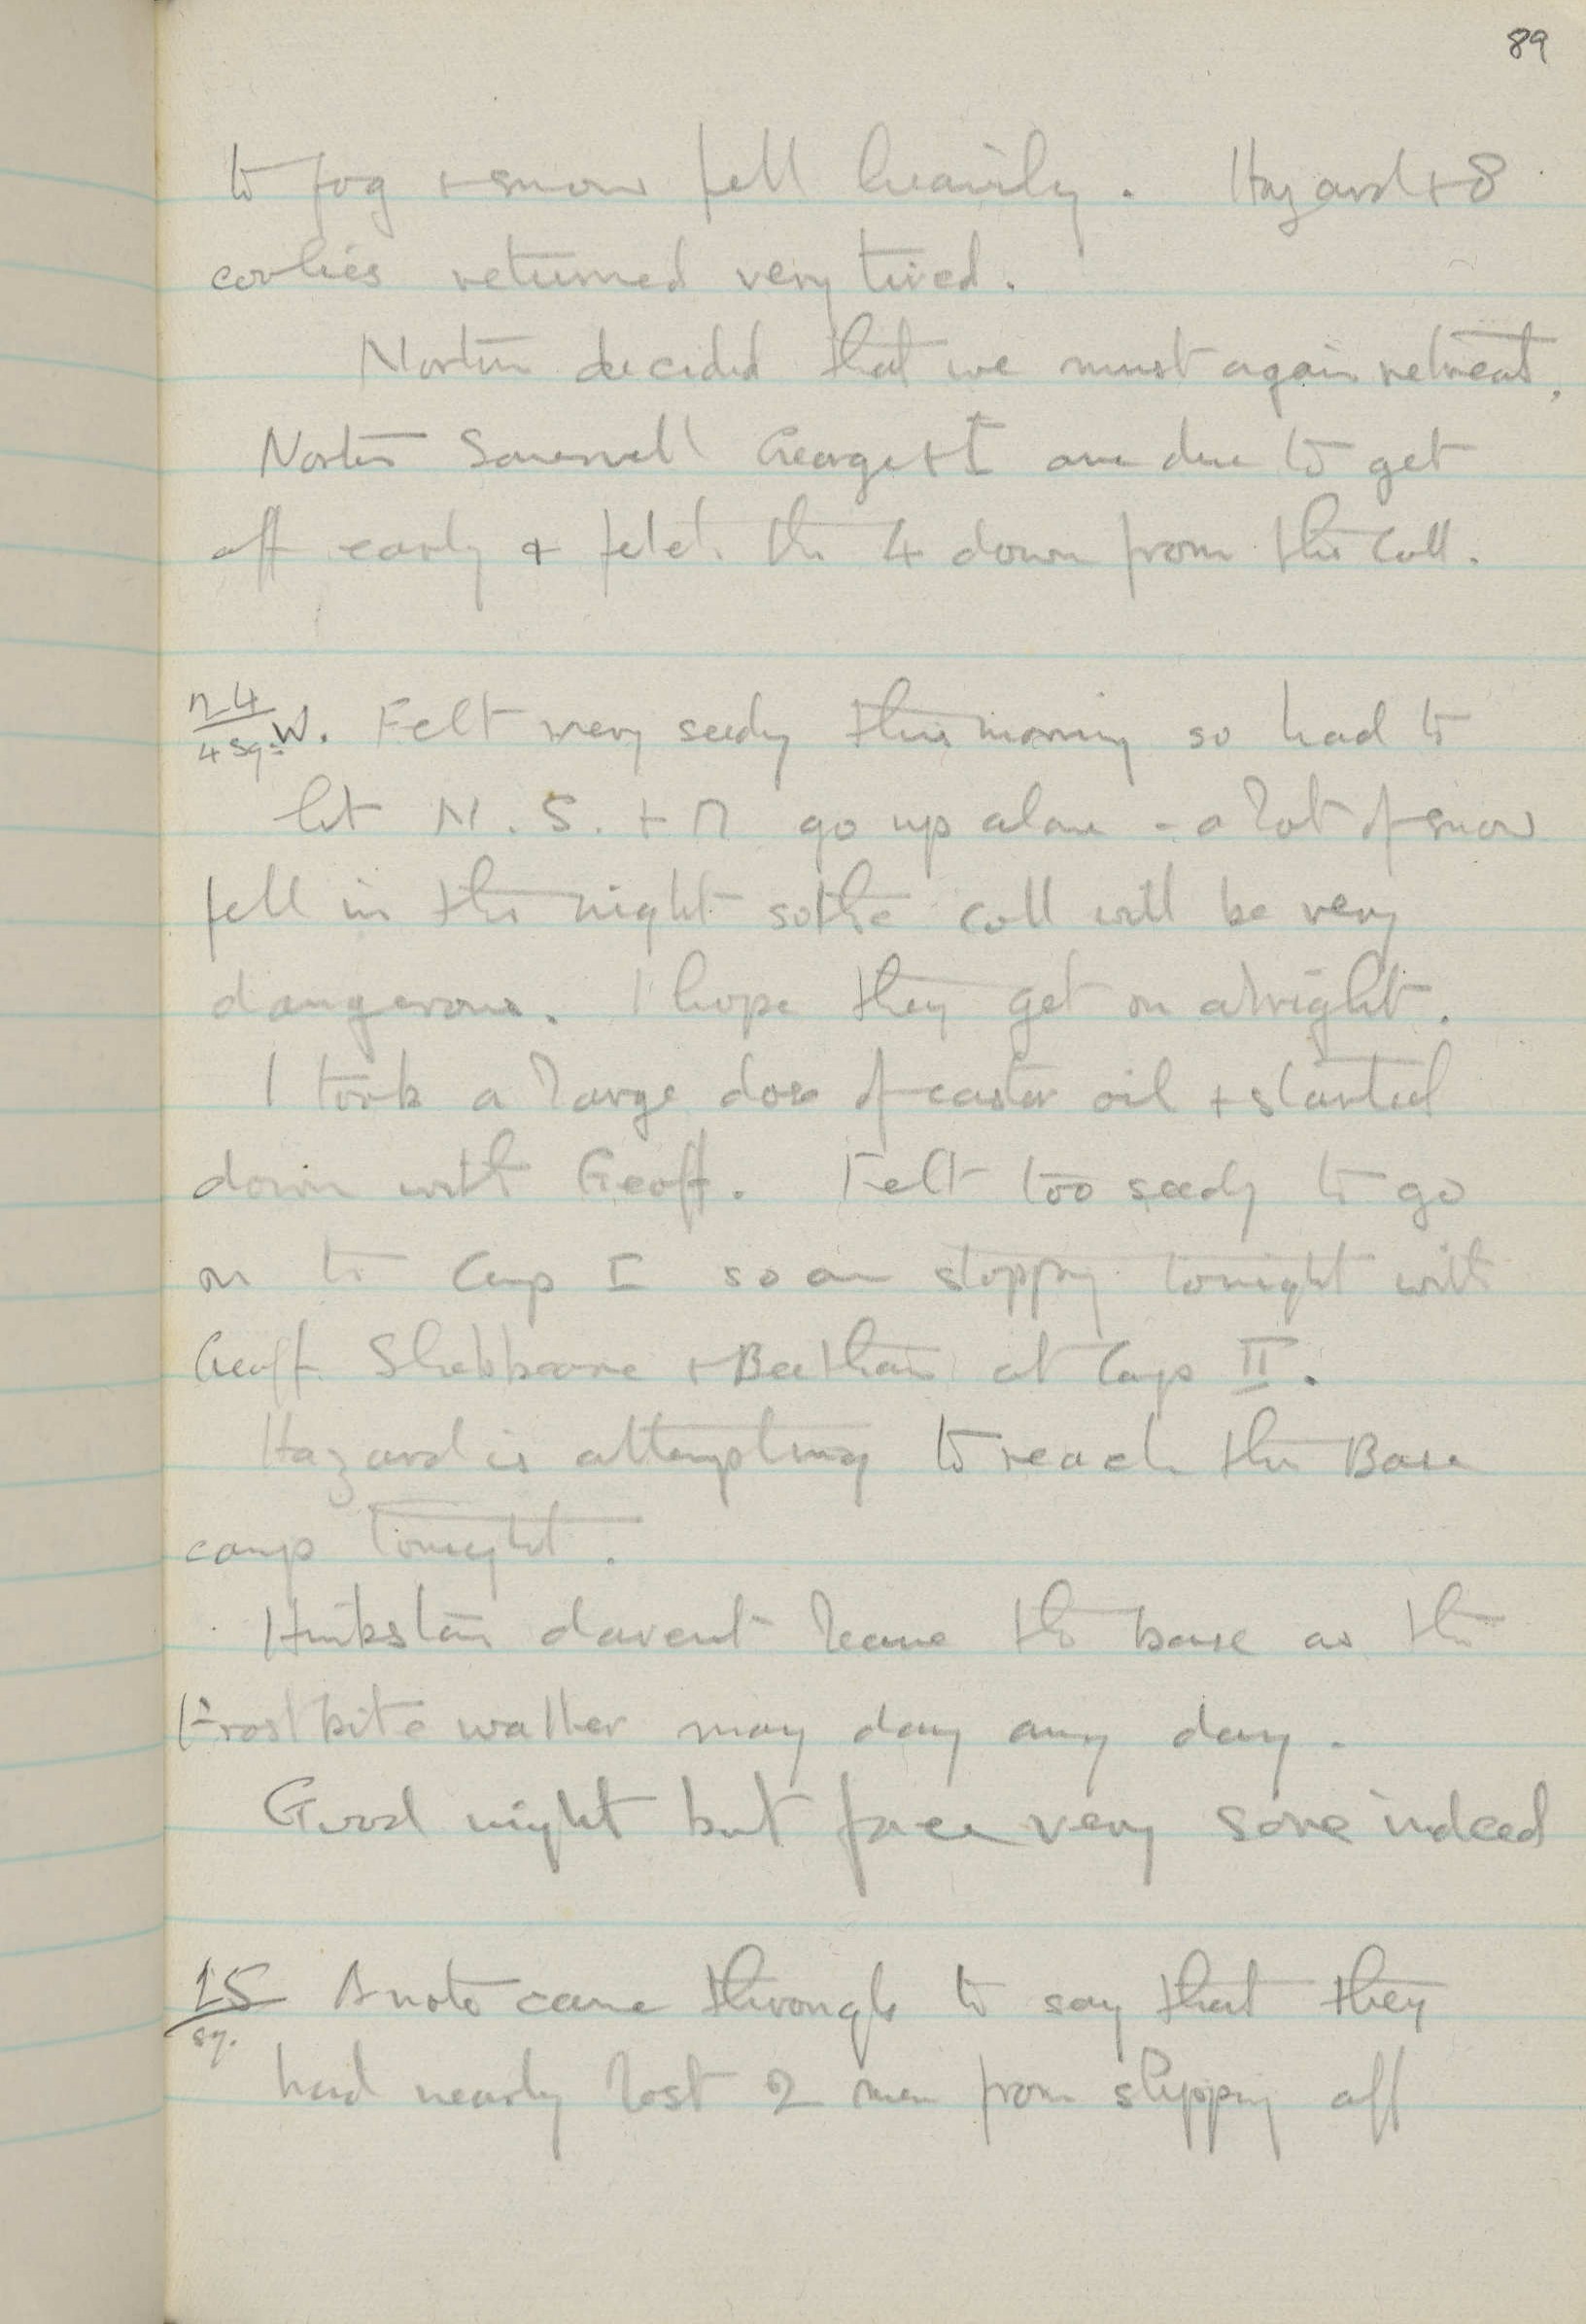 89
to fog + snow fell heavily. Hazard + 8
coolies returned very tired.
Norton decided that we must again retreat.
Norton Somervell George + I are due to get
off early & fetch the 4 down from the Coll.
W. Felt very seedy this morning so had to
let N. S. + M go up alone - a lot of snow
fell in the night so the coll will be very
dangerous. I hope they get on alright.
I took a large dose of castor oil + started
down with Geoff. Felt too seedy to go
on to Camp I so am stopping tonight with
Geoff Shebbeare + Beetham at Camp II.
Hazard is attempting to reach the Base
camp tonight.
Hinkston darent leave the base as the
Frostbite waller may day any day.
Good night but face very sore indeed
A note came through to say that they
had nearly lost 2 men from slipping off